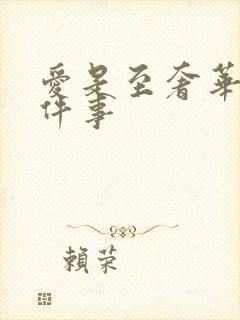 愛是至奢華
件事
賴荣